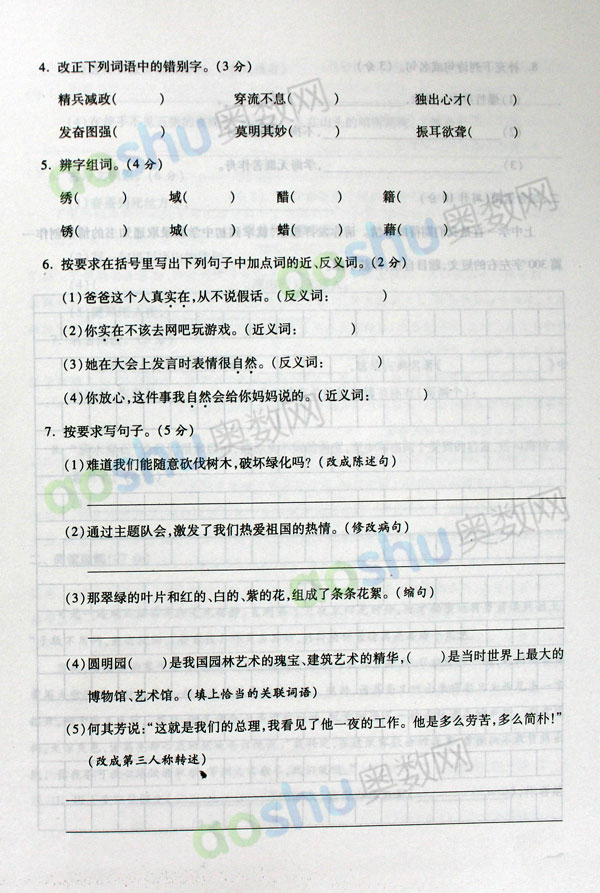 4. 改正下列词语中的错别字。(3分)
精兵减政(　　) 穿流不息(　　) 独出心才(　　)
发奋图强(　　) 莫明其妙(　　) 振耳欲聋(　　)
5. 辨字组词。(4分)
绣(　　) 域(　　) 醋(　　) 籍(　　)
锈(　　) 城(　　) 蜡(　　) 藉(　　)
6. 按要求在括号里写出下列句子中加点词的近、反义词。(2分)
(1)爸爸这个人真实在,从不说假话。(反义词:　　)
(2)你实在不该去网吧玩游戏。(近义词:　　)
(3)她在大会上发言时表情很自然。(反义词:　　)
(4)你放心,这件事我自然会给你妈妈说的。(近义词:　　)
7. 按要求写句子。(5分)
(1)难道我们能随意砍伐树木,破坏绿化吗?(改成陈述句)
(2)通过主题队会,激发了我们热爱祖国的热情。(修改病句)
(3)那翠绿的叶片和红的、白的、紫的花,组成了条条花絮。(缩句)
(4)圆明园(　　)是我国园林艺术的瑰宝、建筑艺术的精华,(　　)是当时世界上最大的
博物馆、艺术馆。(填上恰当的关联词语)
(5)何其芳说:“这就是我们的总理,我看见了他一夜的工作。他是多么劳苦,多么简朴!”
(改成第三人称转述)
aoshu奥数网
aoshu奥数网
aoshu奥数网
aoshu奥数网
aoshu奥数网